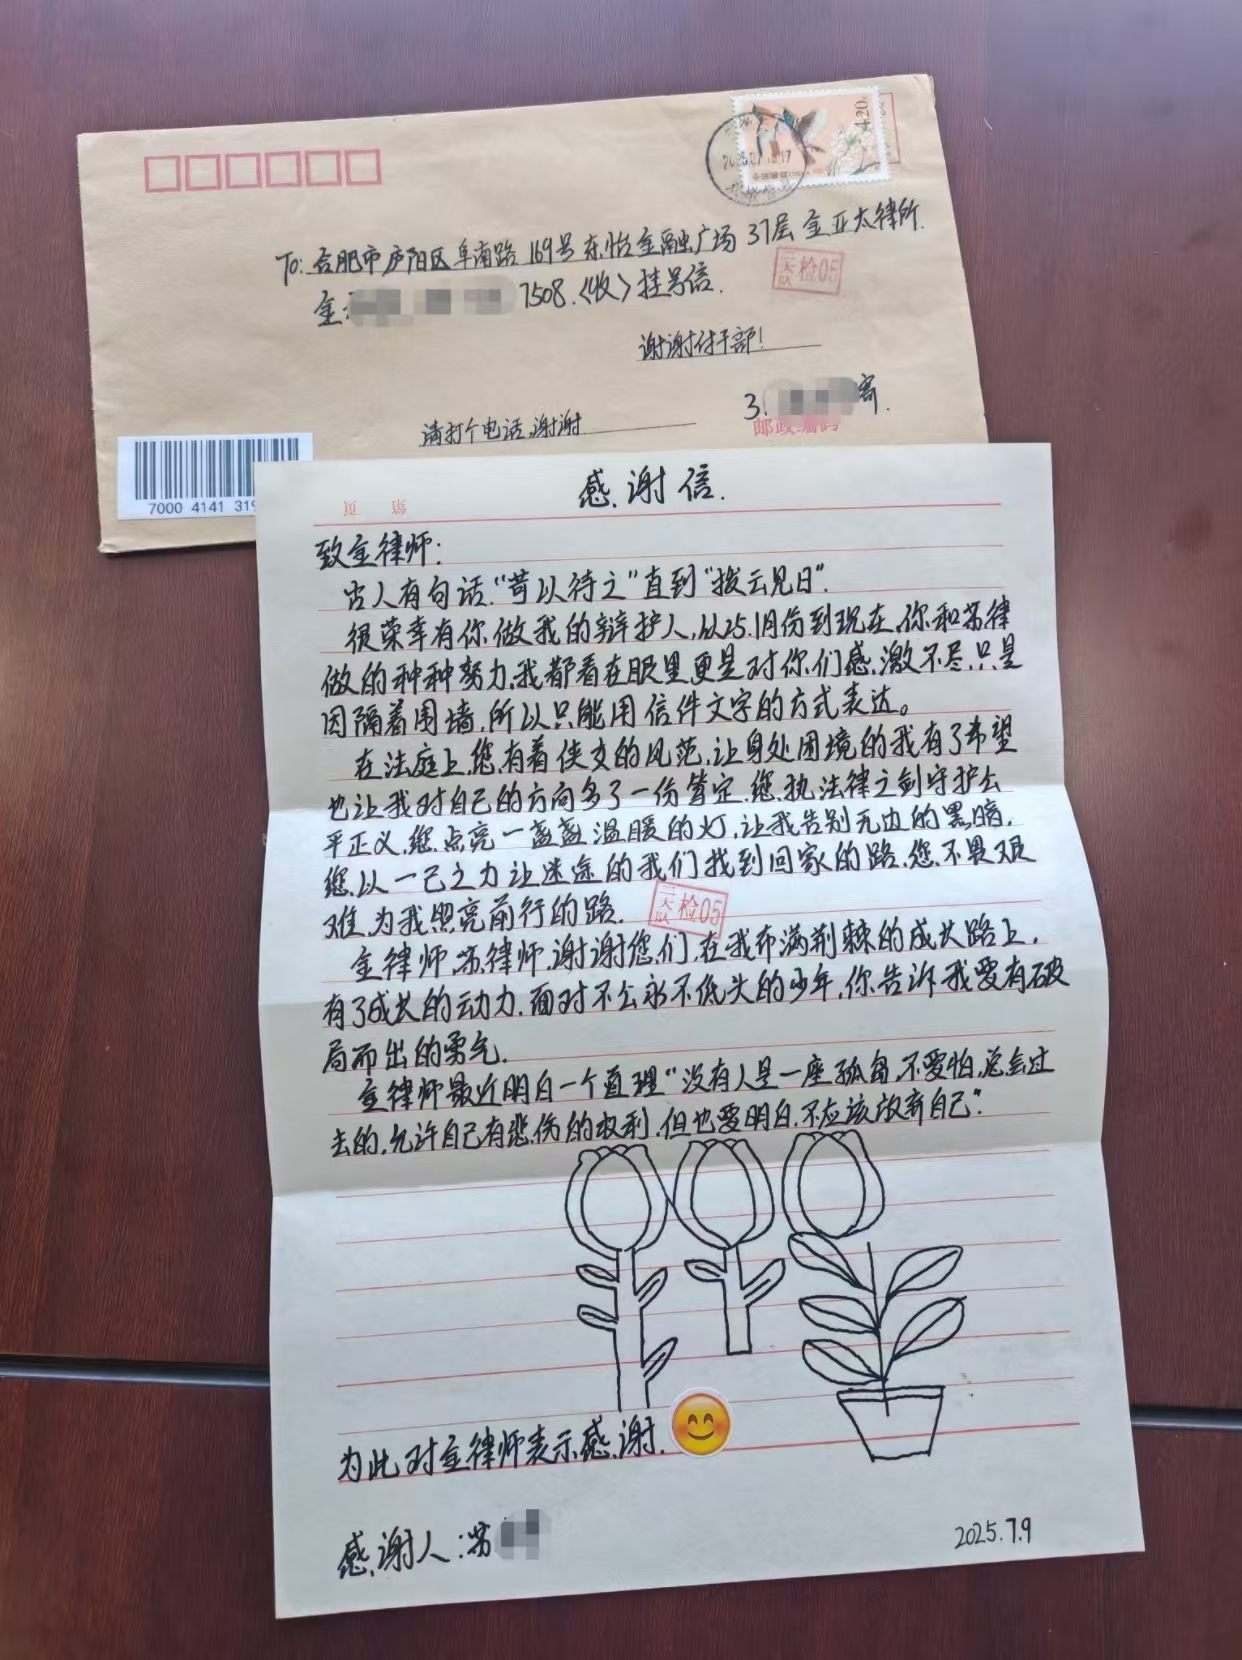 4.20
2025.07.18.17
To: 合肥市庐阳区阜南路169号东怡金融广场37层金亚太律所.
三大队检05
金 7508.〈收〉挂号信.
谢谢付干部!
3 寄.
邮政编码
请打个电话,谢谢
7000 4141 319
第 页
感谢信.
致金律师:
古人有句话."苛以待之"直到"拨云见日".
很荣幸有你做我的辩护人,从25.1月份到现在,你和苏律
做的种种努力,我都看在眼里更是对你们感激不尽,只是
因隔着围墙,所以只能用信件文字的方式表达。
在法庭上,您有着侠女的风范,让身处困境的我有了希望
也让我对自己的方向多了一份笃定,您执法律之剑守护公
平正义,您点亮一盏盏温暖的灯,让我告别无边的黑暗,
您以一己之力让迷途的我们找到回家的路.您不畏艰
难,为我照亮前行的路.
三大队检05
金律师,苏律师,谢谢您们,在我布满荆棘的成长路上,
有了成长的动力.面对不公永不低头的少年,你告诉我要有破
局而出的勇气.
金律师最近明白一个道理"没有人是一座孤岛,不要怕,总会过
去的,允许自己有悲伤的权利,但也要明白,不应该放弃自己".
为此对金律师表示感谢.
感谢人:苏
2025.7.9